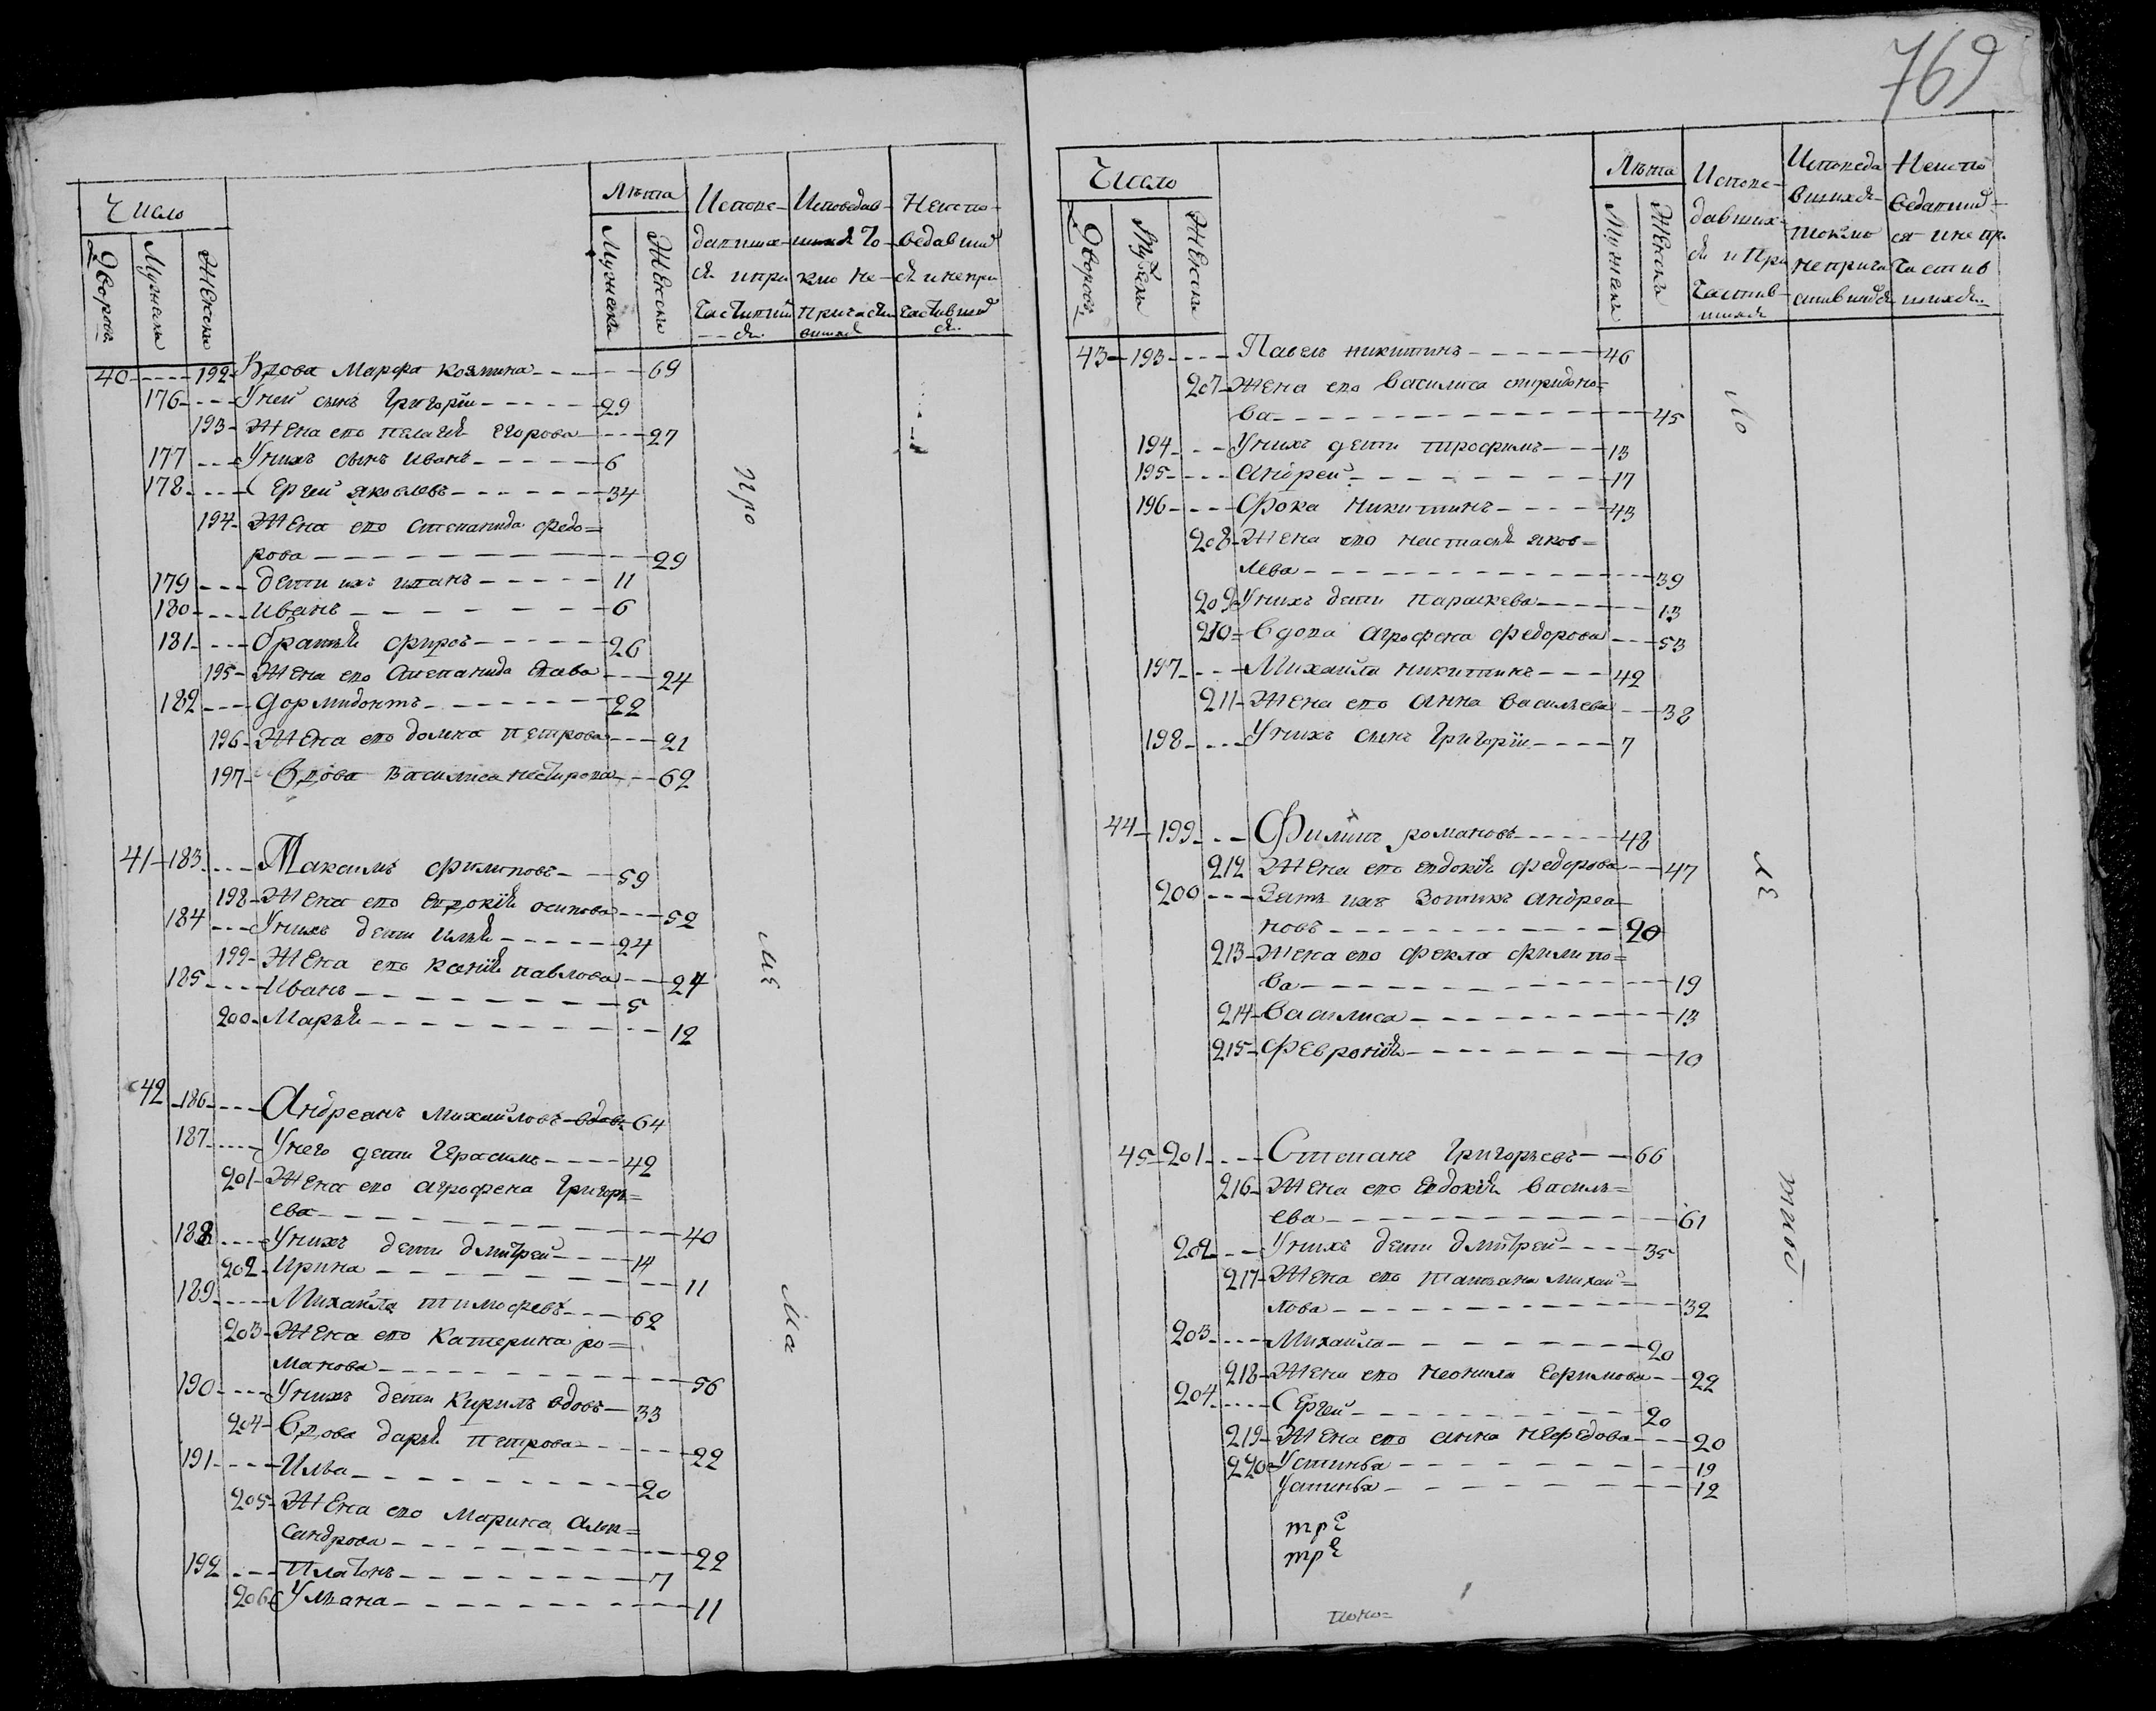 769
Число
Лѣта
Дворовъ
Мужеска
Женска
Мужеска
Женска
Испове-
давших-
ся и при
частивши
ся.
Исповедав-
шихся то-
кмо не-
причасти
вшихся
Неиспо-
ведавших
ся и непри
частивших
ся.
40 192 Вдова Марфа козмина 69
176 У ней сынъ Григорiи 29
193 Жена его пелагия егорова 27
177 У нихъ сынъ Иванъ 6
178 Сергей яковлевъ 34
194 Жена его степанида федо=
рова 29
179 дети ихъ иванъ 11
180 Иванъ 6
181 братья фиров 26
195 Жена его Степанида 24
182 дормидонтъ 22
196 Жена его домна петрова 21
197 Вдова Василиса нестирова 62
41 183 Максимъ филиповъ 59
198 Жена его Евдокiя осипова 52
184 У нихъ дети Илья 24
199 Жена его Ксенiя павлова 24
185 Иванъ 5
200 Марья 12
42 186 Андреянъ михаиловъ вдовъ 64
187 У него дети Герасимъ 42
201 Жена его агрофена Григорь=
ева 40
188 У нихъ дети дмитреи 14
202 Ирина 11
189 Михаила тимофевъ 62
203 Жена его Катерина ро=
манова 56
190 У нихъ дети Кирилъ вдовъ 33
204 Вдова дарья петрова 22
191 Илья 20
205 Жена его Марина Алек=
сандрова 22
192 Платонъ 7
206 Ульяна 11
Про
Ма
Число
Лѣта
Дворовъ
Мужеска
Женска
Мужеска
Женска
Испове-
давших-
ся и при
частив-
шихся
Исповеда
вшихся
токмо
неприча
стившихся
Неиспо
ведавших-
ся и не пр.
частив
шихся.
43 193 Павелъ никитинъ 46
207 Жена его Василиса спиридоно=
ва 45
194 У нихъ дети трофимъ 13
195 Андреи 17
196 Фока Никитинъ 43
208 Жена его настасья яков=
лева 39
209 У нихъ дети параскева 13
210 Вдова агрофена федорова 53
197 Михаила никитинъ 42
211 Жена его анна васильева 38
198 У нихъ сынъ Григорiи 7
44 199 Филипъ романовъ 48
212 Жена его евдокiя федорова 47
200 Зять ихъ Зотикъ андреа-
новъ 20
213 Жена его фекла филипо=
ва 19
214 Василиса 13
215 Феврония 10
45 201 Степанъ Григорьевъ 66
216 Жена его Евдокiя Василь=
ева 61
202 У нихъ дети дмитреи 35
217 Жена его татьяна михаи=
лова 32
203 Михаила 20
218 Жена его неонила Ефимова 22
204 Сергеи 20
219 Жена его анна Нефедова 20
220 Устинья 19
Устинья 12
По